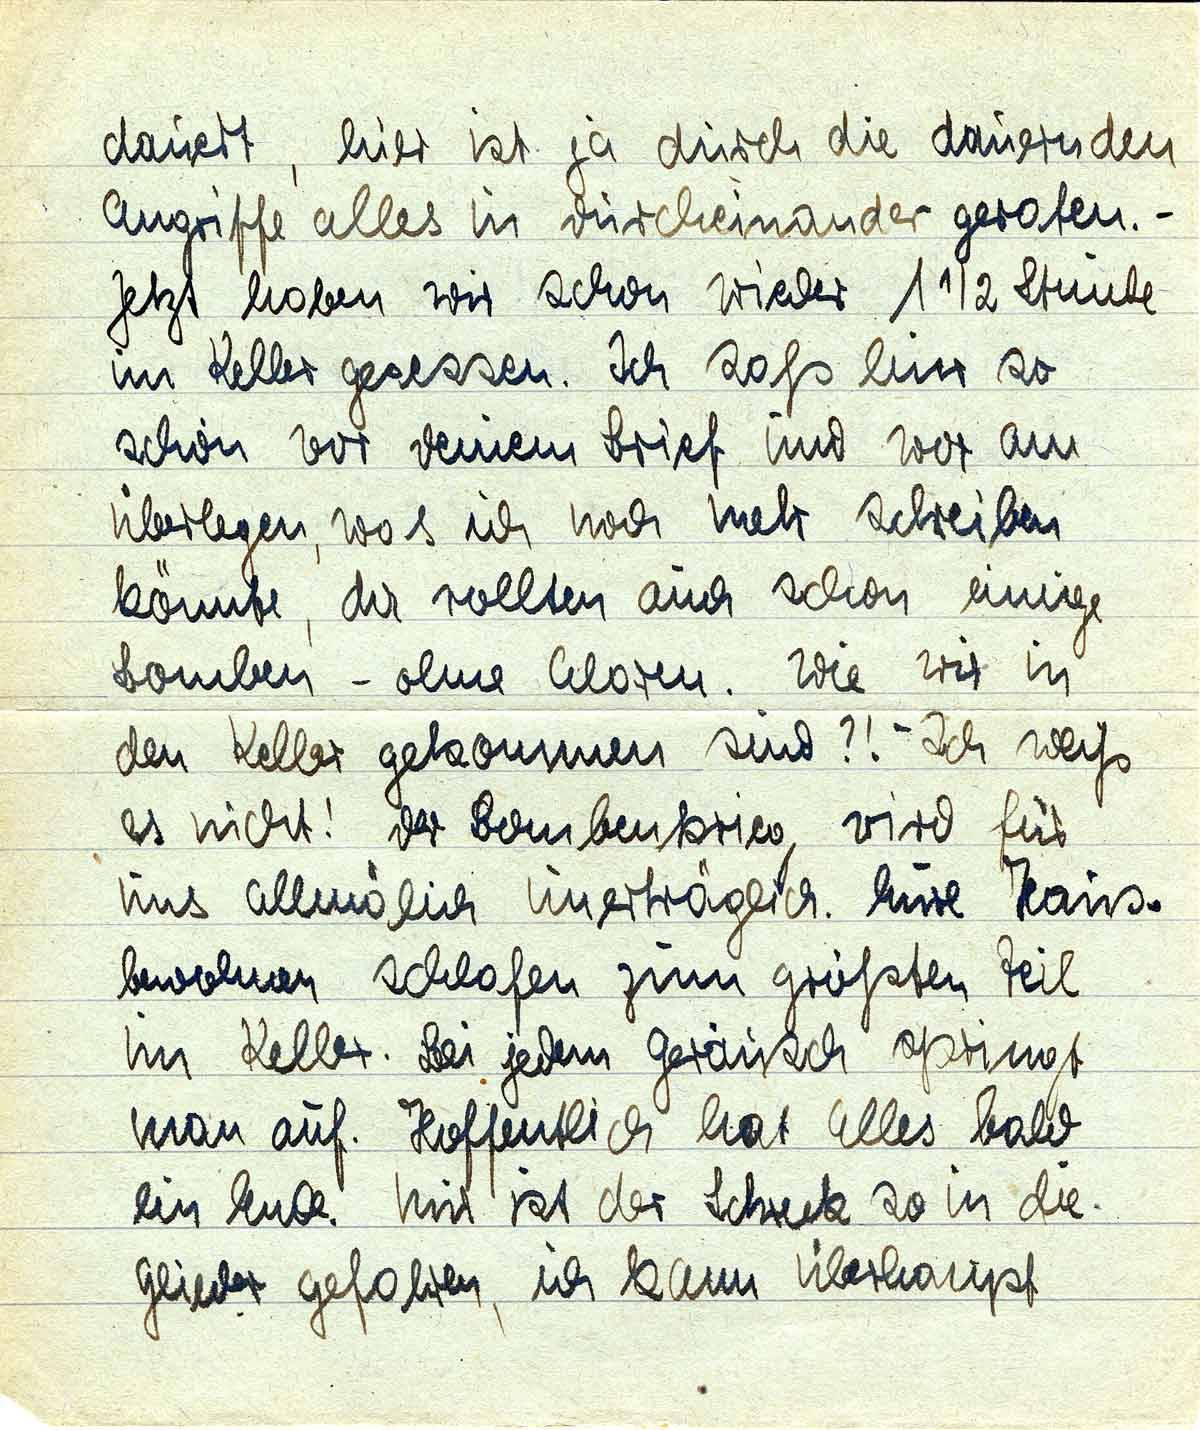 dauert, hier ist ja durch die dauernden
Angriffe alles in durcheinander geraten. -
Jetzt haben wir schon wieder 1 1/2 Stunde
im Keller gesessen. Ich saß hier so
schön vor deinem Brief und war am
überlegen, was ich noch mehr schreiben
könnte, da rollten auch schon einige
Bomben - ohne Alarm. Wie wir in
den Keller gekommen sind?! - Ich weiß
es nicht! der Bombenkrieg wird für
uns allmälich unerträglich. Haus-
bewohner schlafen zum größten Teil
im Keller. Bei jedem Geräusch springt
man auf. Hoffentlich hat alles bald
ein Ende. Mir ist der Schreck so in die
Glieder gefahren, ich kann überhaupt